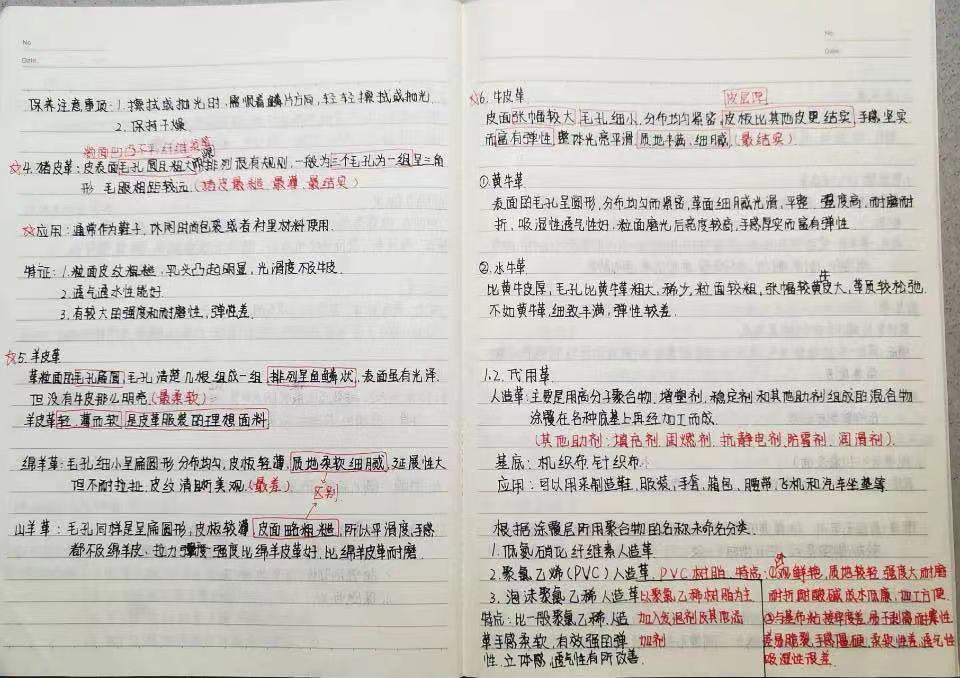 No
Date.
保养注意事项：1.擦拭或抛光时，需顺着鳞片方向，轻轻擦拭或抛光
2.保持干燥
粒面凹凸不平,纤维紧密
☆4.猪皮革：皮表面毛孔圆且粗大,排列很有规则，一般为三个毛孔为一组呈三角
形 毛眼相距较远.(猪皮最粗.最薄.最结实)
☆应用：通常作鞋子，休闲时尚包袋或者衬里材料使用.
特征：1.粒面皮纹粗糙，乳头凸起明显，光滑度不及牛皮.
2.透气透水性能好
3.有较大的强度和耐磨性，弹性差.
☆5.羊皮革
革粒面的毛孔扁圆,毛孔清楚几根组成一组,排列呈鱼鳞状,表面虽有光泽.
但没有牛皮那么明亮.(最柔软)
羊皮革轻.薄而软 是皮革服装的理想面料
绵羊革:毛孔细小呈扁圆形分布均匀,皮板轻薄,质地柔软细腻,延展性大
但不耐拉扯,皮纹清晰美观.(最差)
区别
山羊革：毛孔同样是呈扁圆形,皮板较薄 皮面略粗糙 所以平滑度,手感
都不及绵羊皮，拉力强度比绵羊皮革好.比绵羊皮革耐磨.
No
Date.
☆6.牛皮革
皮层厚
皮面张幅较大 毛孔细小.分布均匀紧密,皮板比其他皮更结实,手感坚实
而富有弹性 整体光亮平滑 质地丰满,细腻 (最结实)
①黄牛革
表面的毛孔呈圆形,分布均匀而紧密,革面细腻光滑,平整,强度高,耐磨耐
折，吸湿性透气性好,粒面磨光后亮度较高,手感厚实而富有弹性
②水牛革
比黄牛皮厚，毛孔比黄牛革粗大.稀少,粒面较粗,张幅较黄牛皮大,革质较松弛
不如黄牛革,细致丰满，弹性较差.
1.2.代用革
人造革：主要是用高分子聚合物.增塑剂.稳定剂和其他助剂组成的混合物
涂覆在各种底基上再经加工而成.
(其他助剂：填充剂.阻燃剂.抗静电剂,防霉剂.润滑剂).
基底：机织布.针织布.
应用：可以用来制造鞋,服装，手套,箱包,腰带,飞机和汽车坐垫等
根据涂覆层所用聚合物的名称来命名分类.
1.低氮硝化纤维素人造革
2.聚氯乙烯(PVC)人造革.PVC树脂.特点:①外观鲜艳,质地较轻 强度大耐磨
3.泡沫聚氯乙稀人造革以聚氯乙稀树脂为主 耐折耐酸碱 成本低廉,加工方便.
特点：比一般聚氯乙稀.人造 加入发泡剂及其他添 ②与基布粘接牢度差,易于剥离,耐寒性
革手感柔软,有效强的弹 加剂 差易脆裂,手感僵硬,柔软性差,透气性
性.立体感,透气性有所改善. 吸湿性很差.